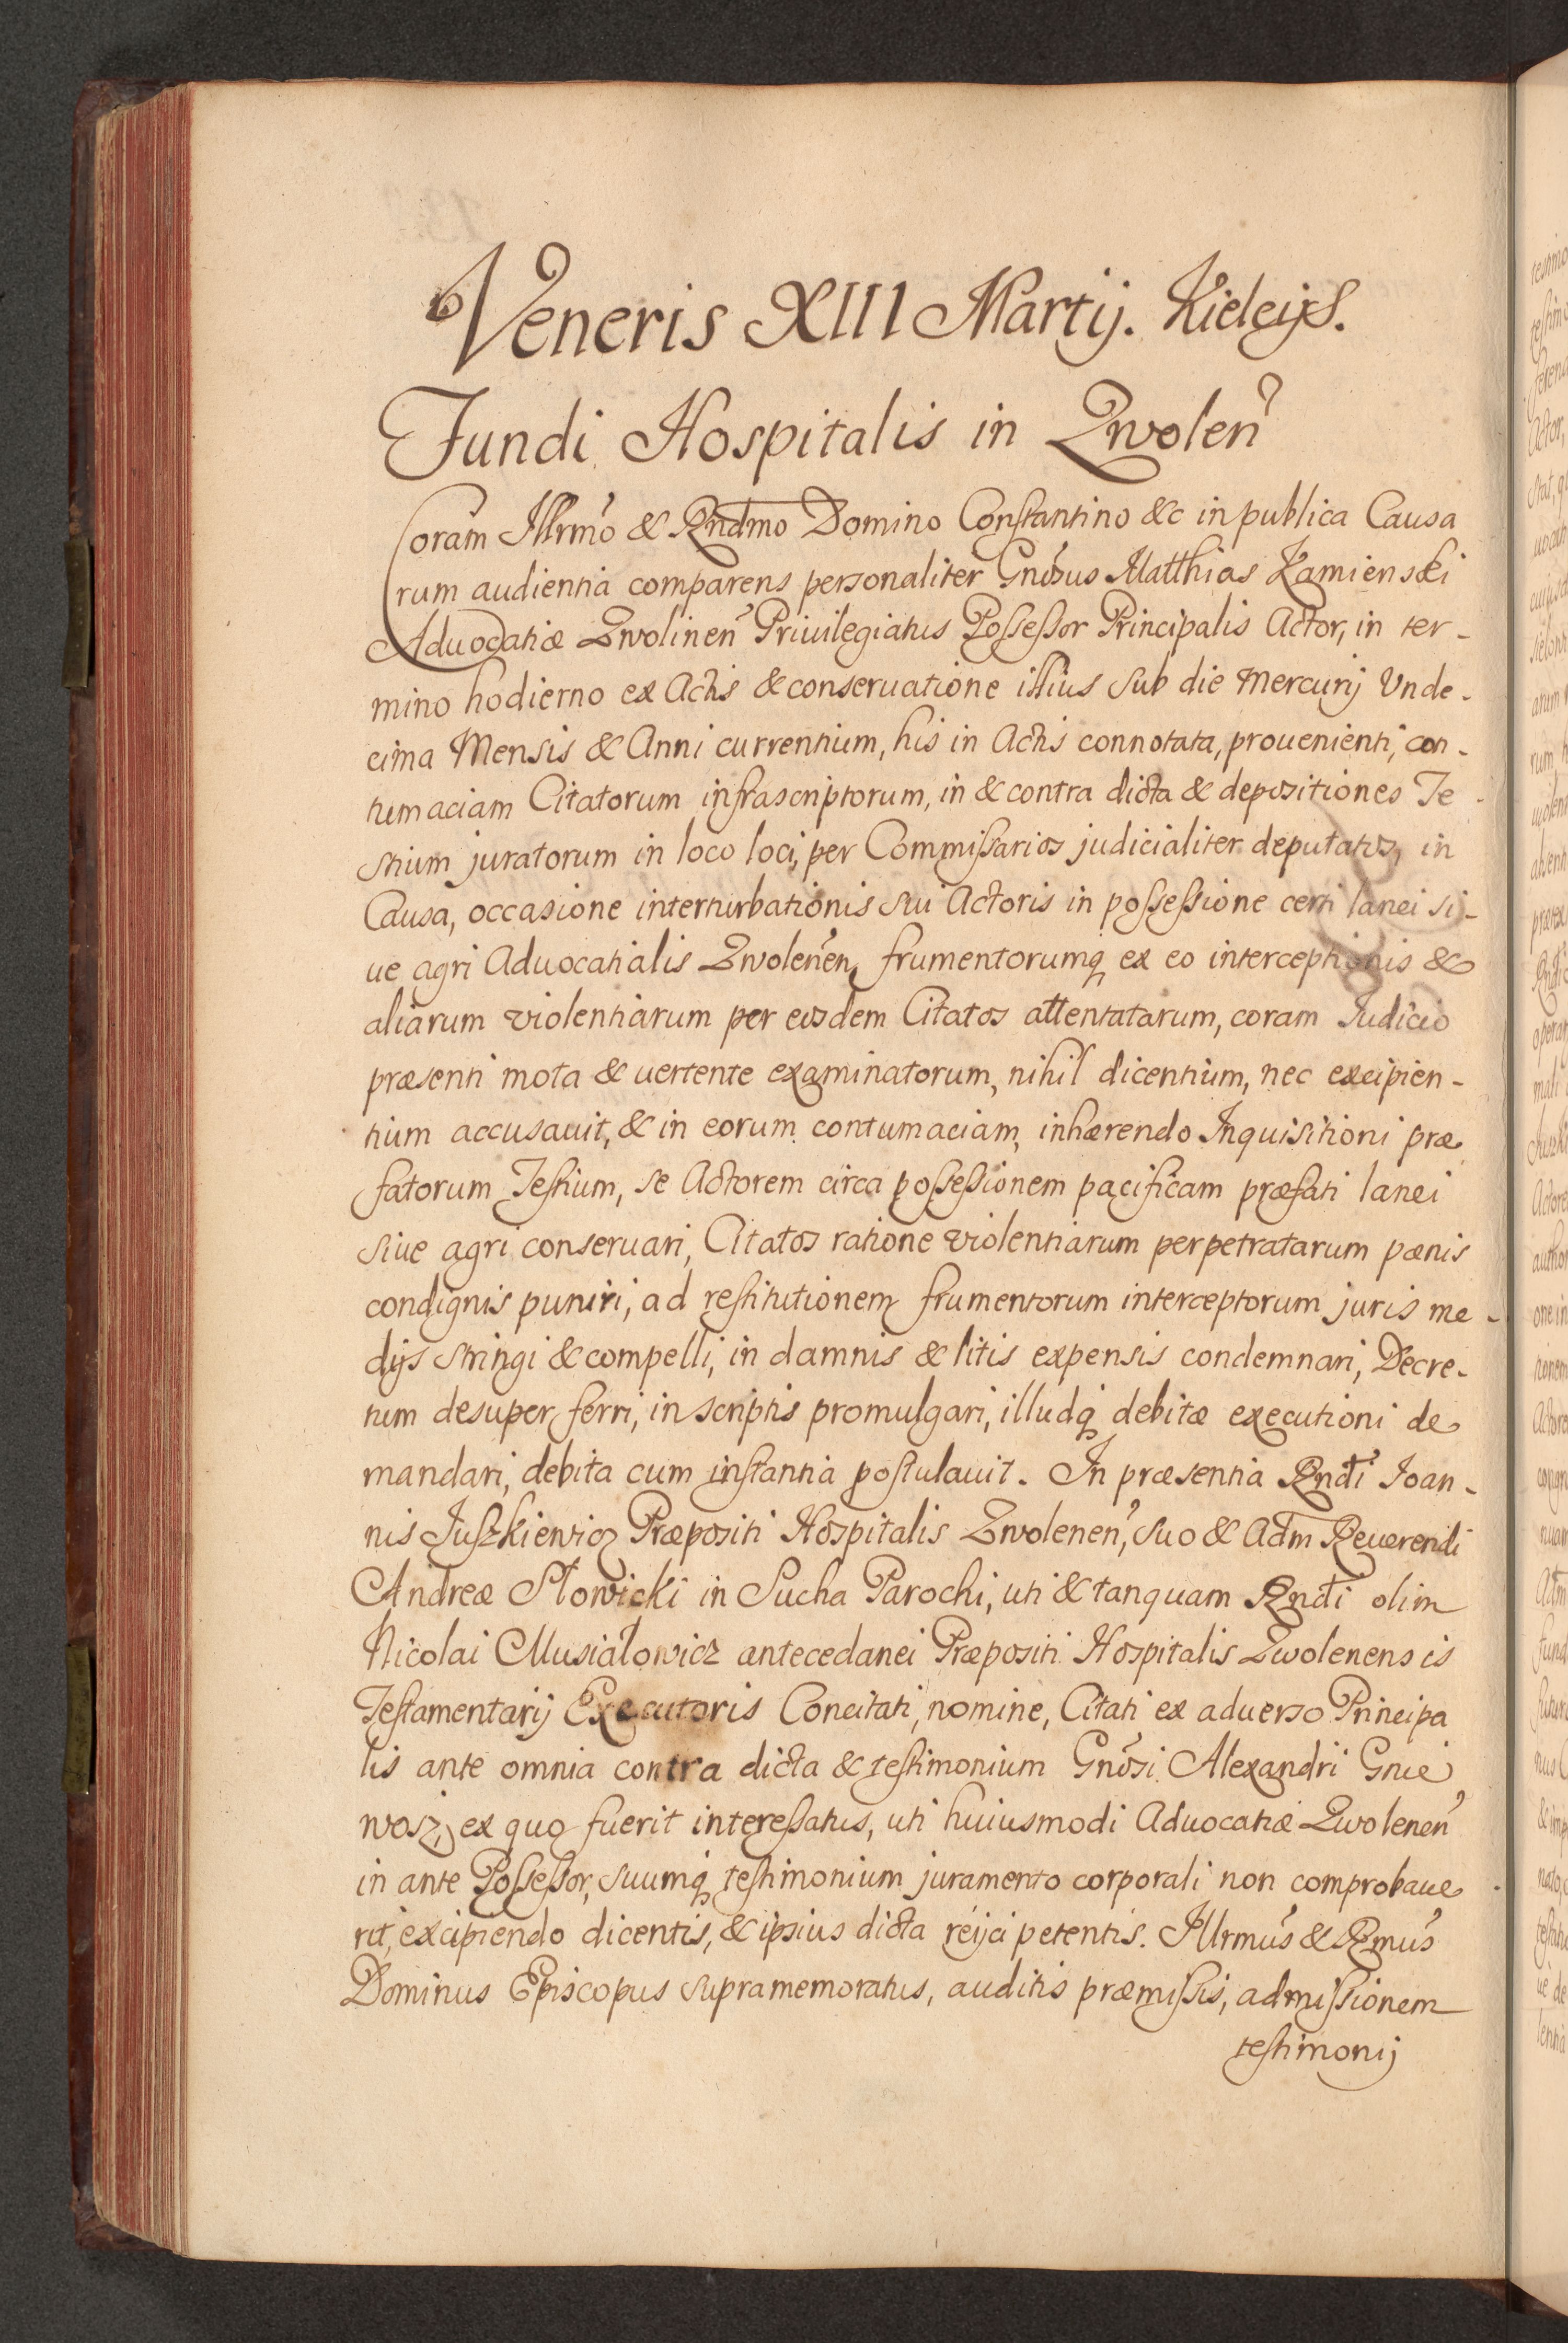 Veneris XIII Martij. Kielcijs.
Fundi Hospitalis in Zwolen̄
Coram Illrmo & Rndmo Domino Constantino &c in publica Causa
rum audientia comparens personaliter Gnosus Matthias Kamienski
Aduocatiæ Zwolinen̄ Priuilegiatus Possessor Principalis Actor, in ter-
mino hodierno ex Actis & conseruatione illius sub die Mercurij Vnde-
cima Mensis & Anni currentium, his in Actis connotata, prouenienti, con-
tumaciam Citatorum infrascriptorum, in & contra dicta & depositiones Te-
stium juratorum in loco loci, per Commissarios judicialiter deputatos, in
Causa, occasione interturbationis sui Actoris in possessione certi lanei si-
ue agri Aduocatialis Zwolenen̄, frumentorumq ex eo interceptionis &
aliarum violentiarum per eosdem Citatos attentatarum, coram Iudicio
præsenti mota & uertente examinatorum, nihil dicentium, nec excipien-
tium accusauit, & in eorum contumaciam, inhærendo Inquisitioni præ
fatorum Testium, se Actorem circa possessionem pacificam præfati lanei
siue agri conseruari, Citatos ratione violentiarum perpetratarum pœnis
condignis puniri, ad restitutionem frumentorum interceptorum juris me-
dijs stringi & compelli, in damnis & litis expensis condemnari, Decre-
tum desuper ferri, in scriptis promulgari, illudq debitæ executioni de
mandari, debita cum instantia postulauit. In præsentia Rndi Ioan-
nis Juszkiewicz Præpositi Hospitalis Zwolenen̄, suo & Adm Reuerendi
Andreæ Słowicki in Sucha Parochi, uti & tanquam Rndi olim
Nicolai Musiałowicz antecedanei Præpositi Hospitalis Zwolenensis
Testamentarij Executoris Concitati, nomine, Citati ex aduerso Principa
lis ante omnia contra dicta & testimonium Gnosi Alexandri Gnie
wosz, ex quo fuerit interessatus, uti huiusmodi Aduocatiæ Zwolenen̄
in ante Possessor, suumq testimonium juramento corporali non comprobaue
rit, excipiendo dicentis, & ipsius dicta reijci petentis. Illrmus & Rmus
Dominus Episcopus supramemoratus, auditis præmissis, admissionem
testimonij